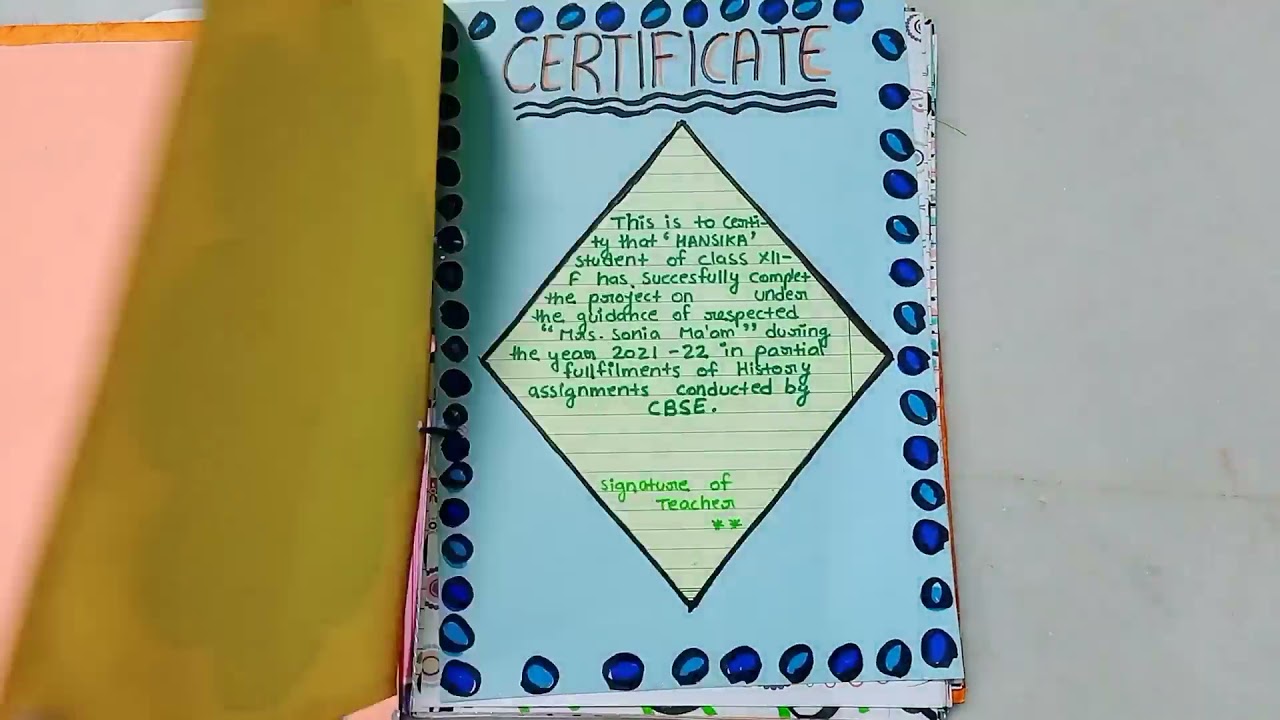 CERTIFICATE
This is to certi-
ty that ‘HANSIKA’
student of class XII-
F has succesfully complet
the project on under
the guidance of respected
“Mrs. Sonia Ma'am” during
the year 2021-22 in partial
fullfilments of History
assignments conducted by
CBSE.
signature of
Teacher
**